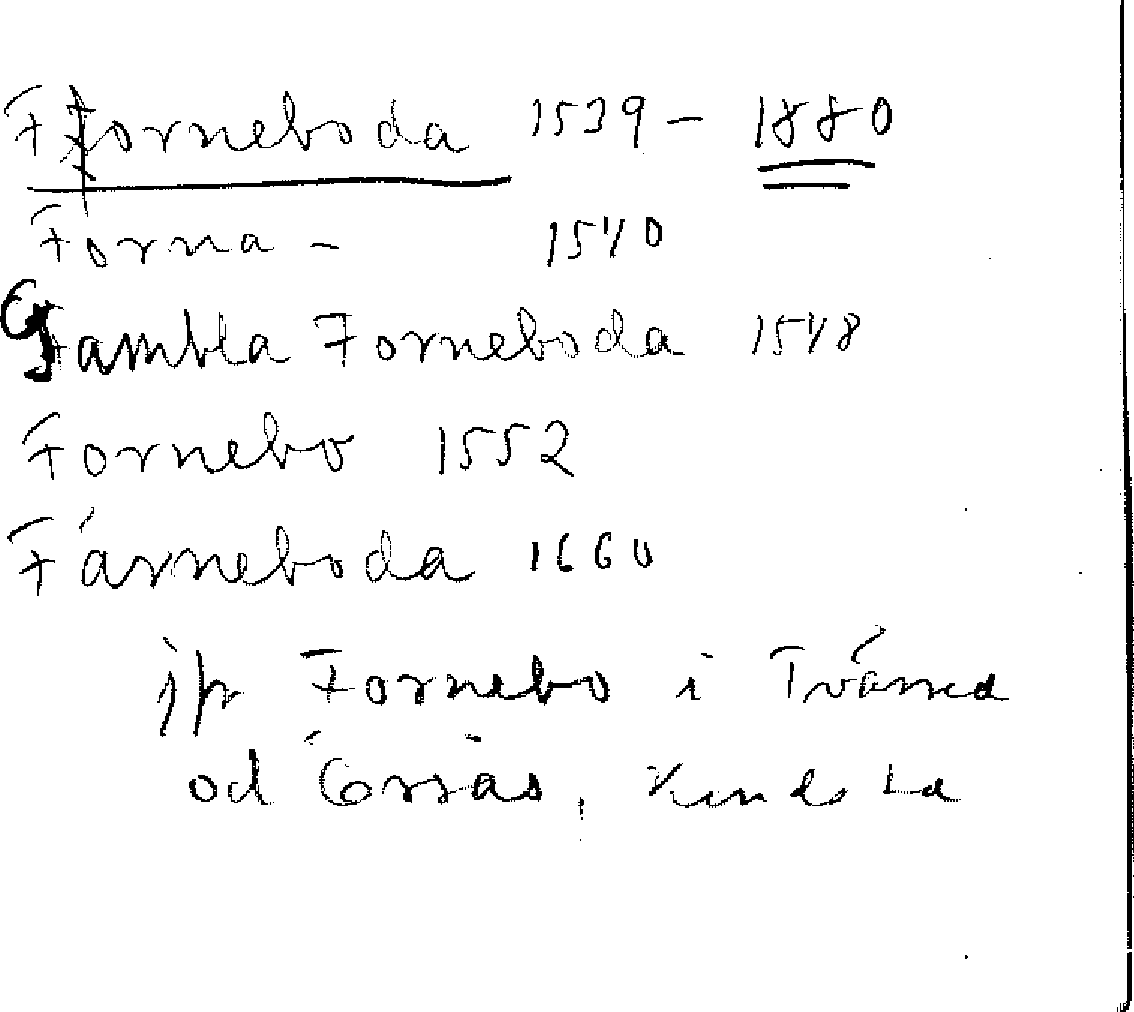 Forneboda 1539 – 1880
Forna – 1540
Gambla Forneboda 1548
Fornebo 1552
Fårneboda 1660
jfr Fornebo i Tvärred
od Kinds hd